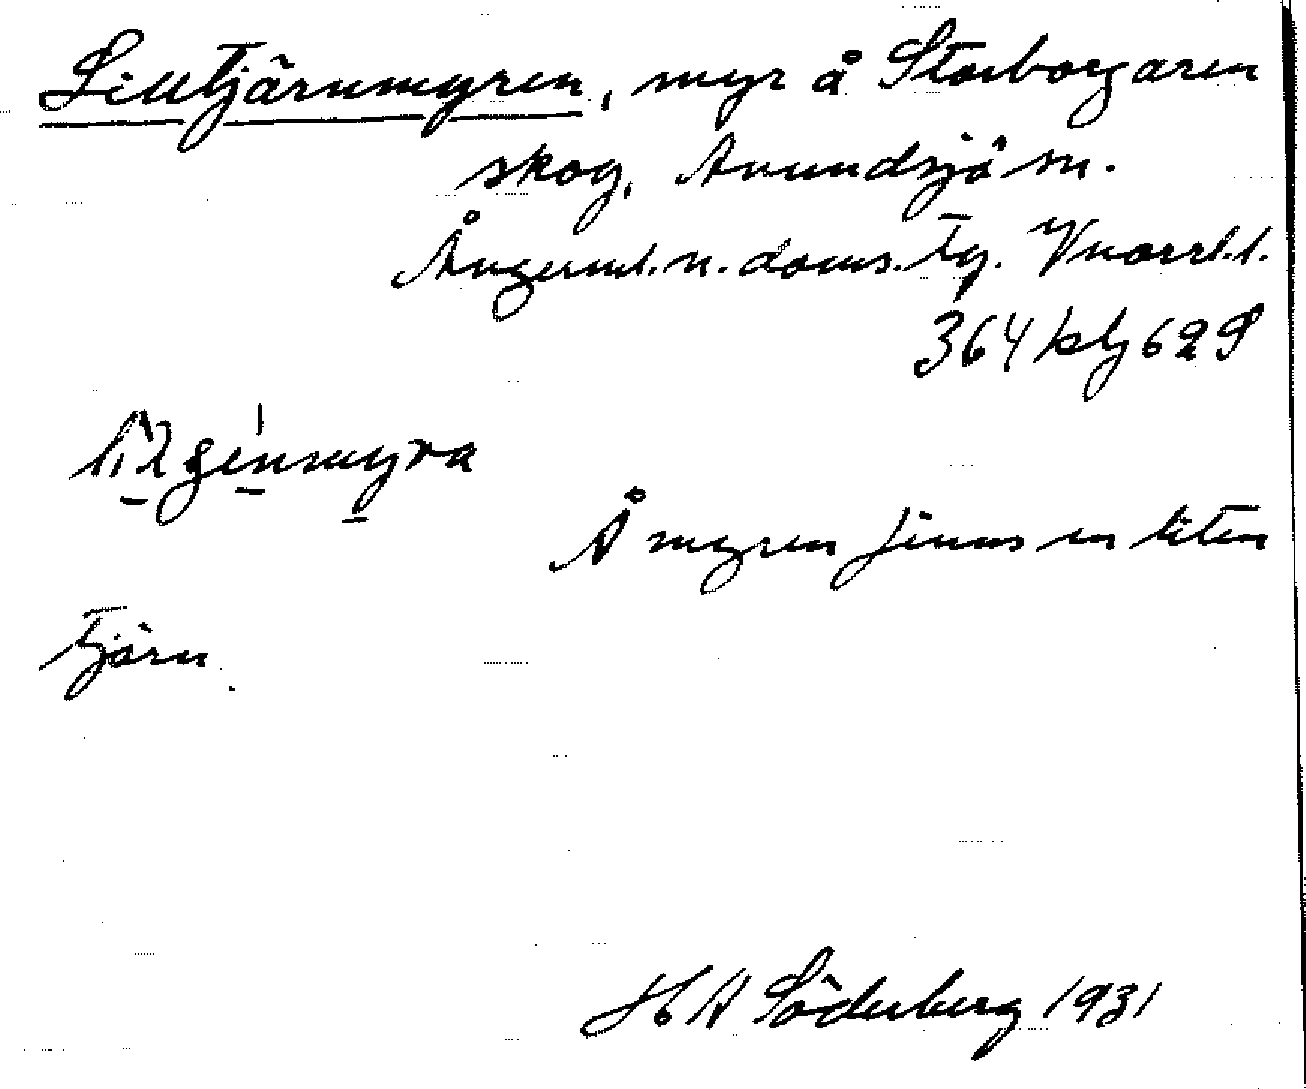 Lilltjärnmyren, myr å Storborgaren
skog, Anundsjö sn.
Ångerml. n. doms. tg. Vnorrl. l.
364 klj 629
lilgénmyra
Å myren finns en liten
tjärn.
H A Söderberg 1931